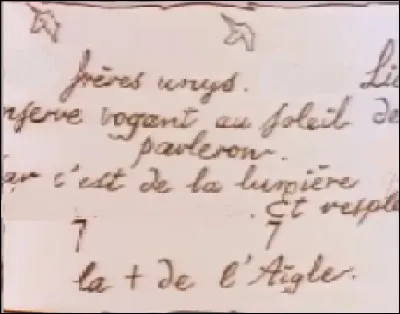 frères unys. Lic
nserve vogant au soleil de
parleron.
ar c'est de la lumière
. Et resple
7 7
la + de l'Aigle.